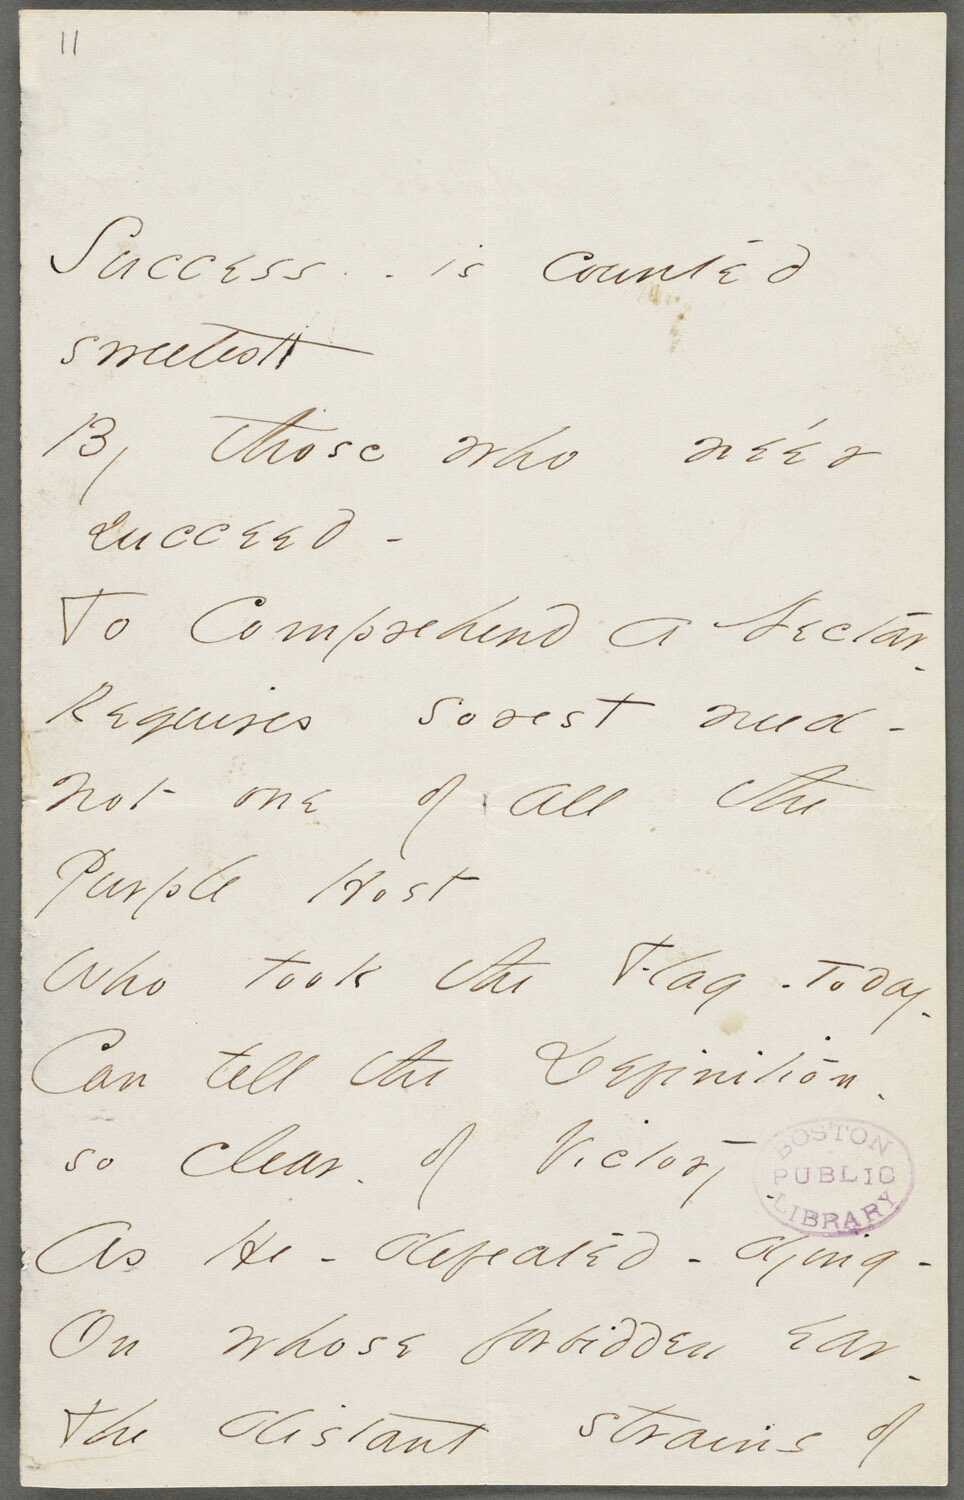 11
Success - is counted
sweetest
By those who ne'er
succeed -
To Comprehend a Nectar -
Requires sorest need -
Not one of all the
Purple Host
Who took the Flag - Today -
Can tell the Definition -
so clear - of Victory -
As He - defeated - dying -
On whose forbidden ear -
The distant strains of
BOSTON
PUBLIC
LIBRARY